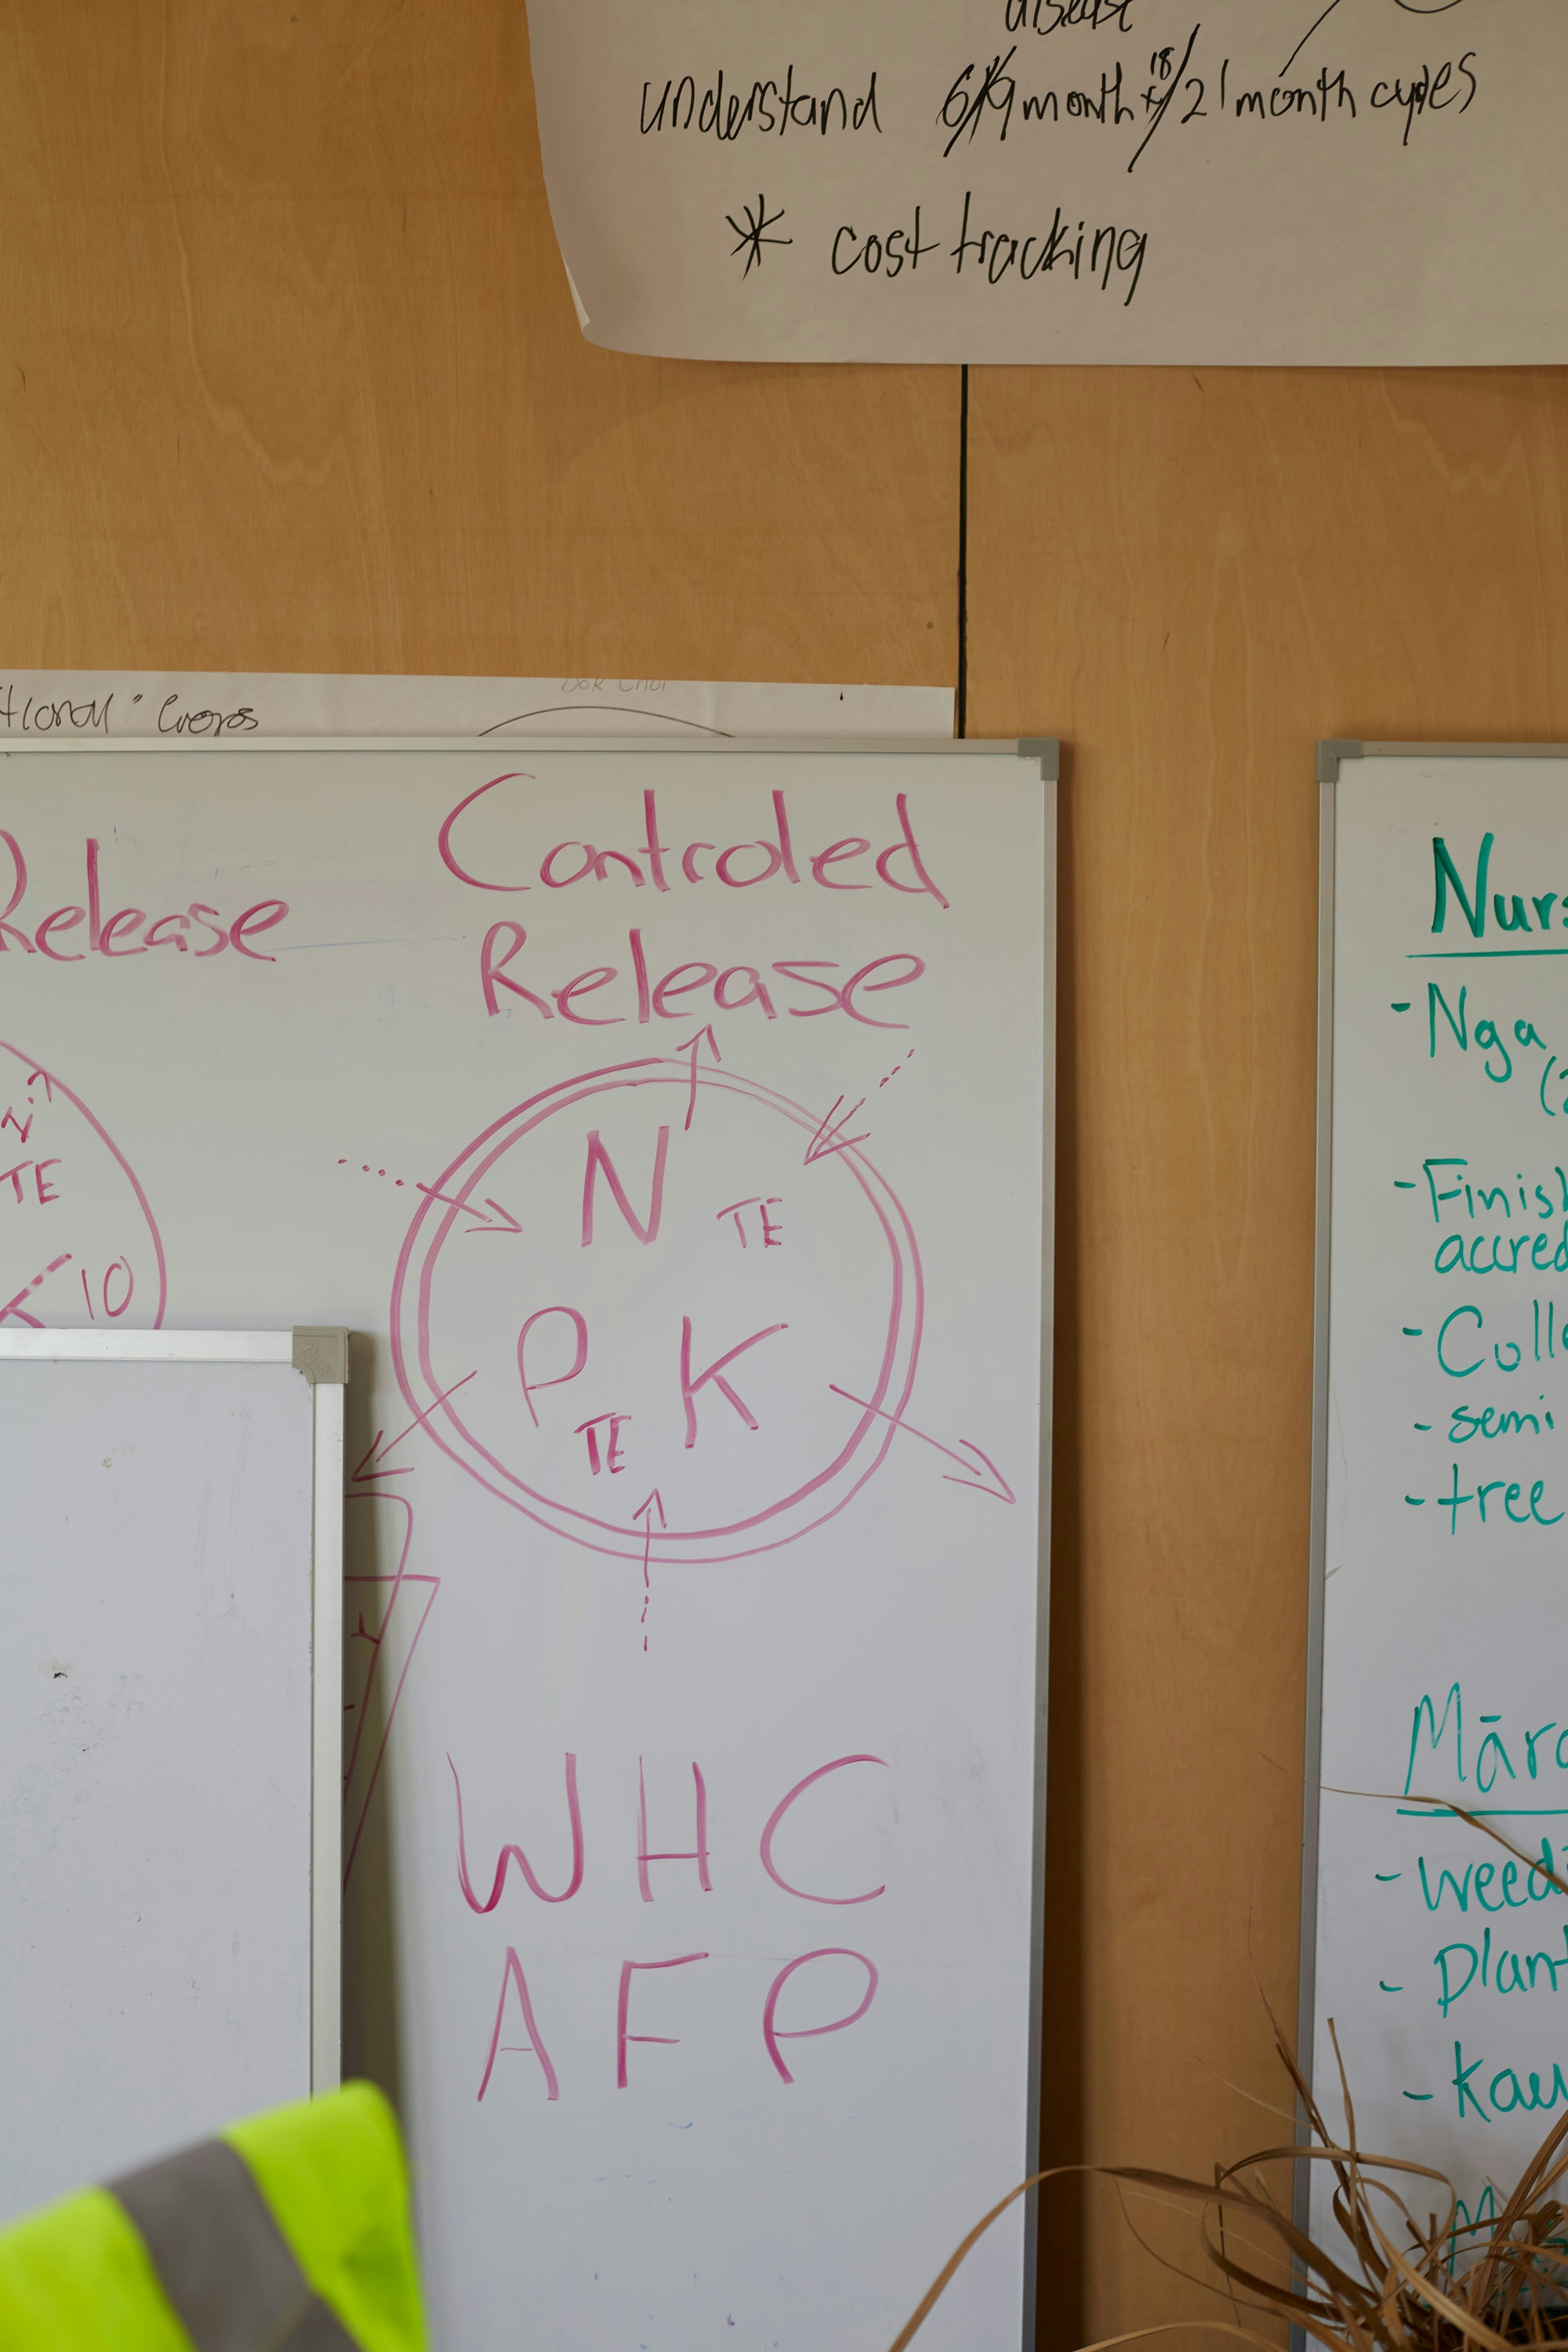 disease
understand 6/9 month + 18/21 month cycles
* cost tracking
Crops
Release
TE
K 10
Controled
Release
N
TE
P K
TE
WHC
AFP
Nurs
- Nga
- Finish
accred
- Colle
- semi
- tree
Māra
- weedi
- Plant
- Kau